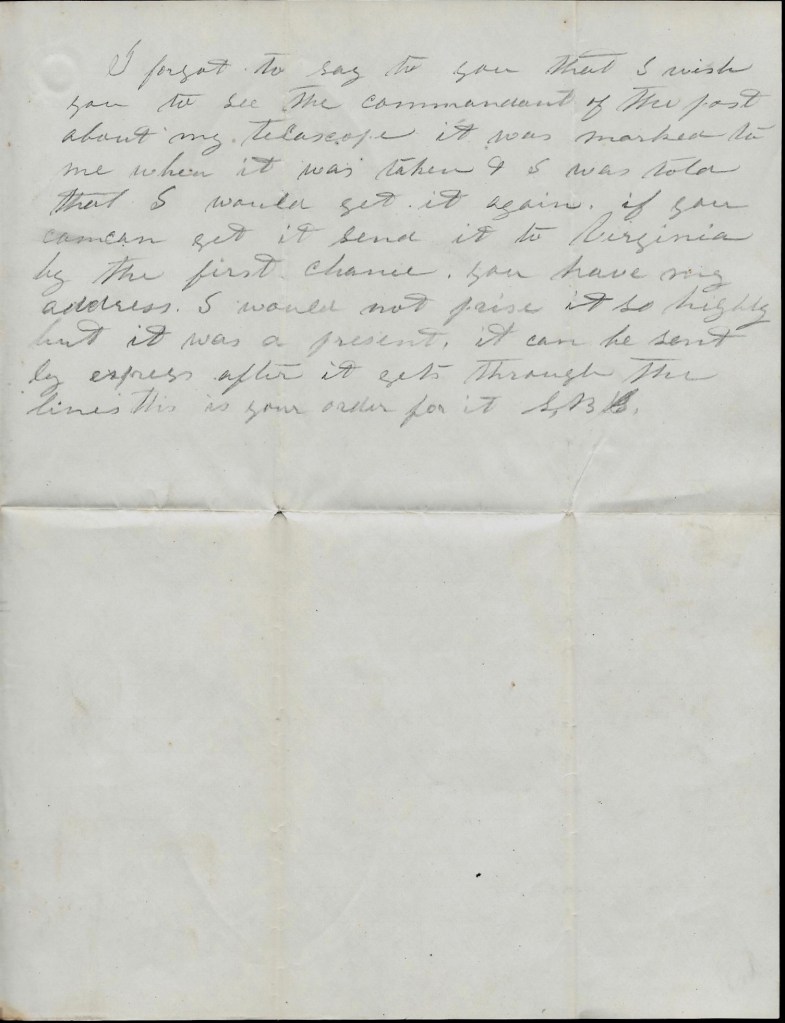 I forgot to say to you that I wish
you to see the commandant of the post
about my telascope it was marked to
me when it was taken & I was told
that I would get it again. if you
comcan get it send it to Virginia
by the first chance. you have my
address. I would not prise it so highly
but it was a present. it can be sent
by express after it gets through the
lines this is your order for it